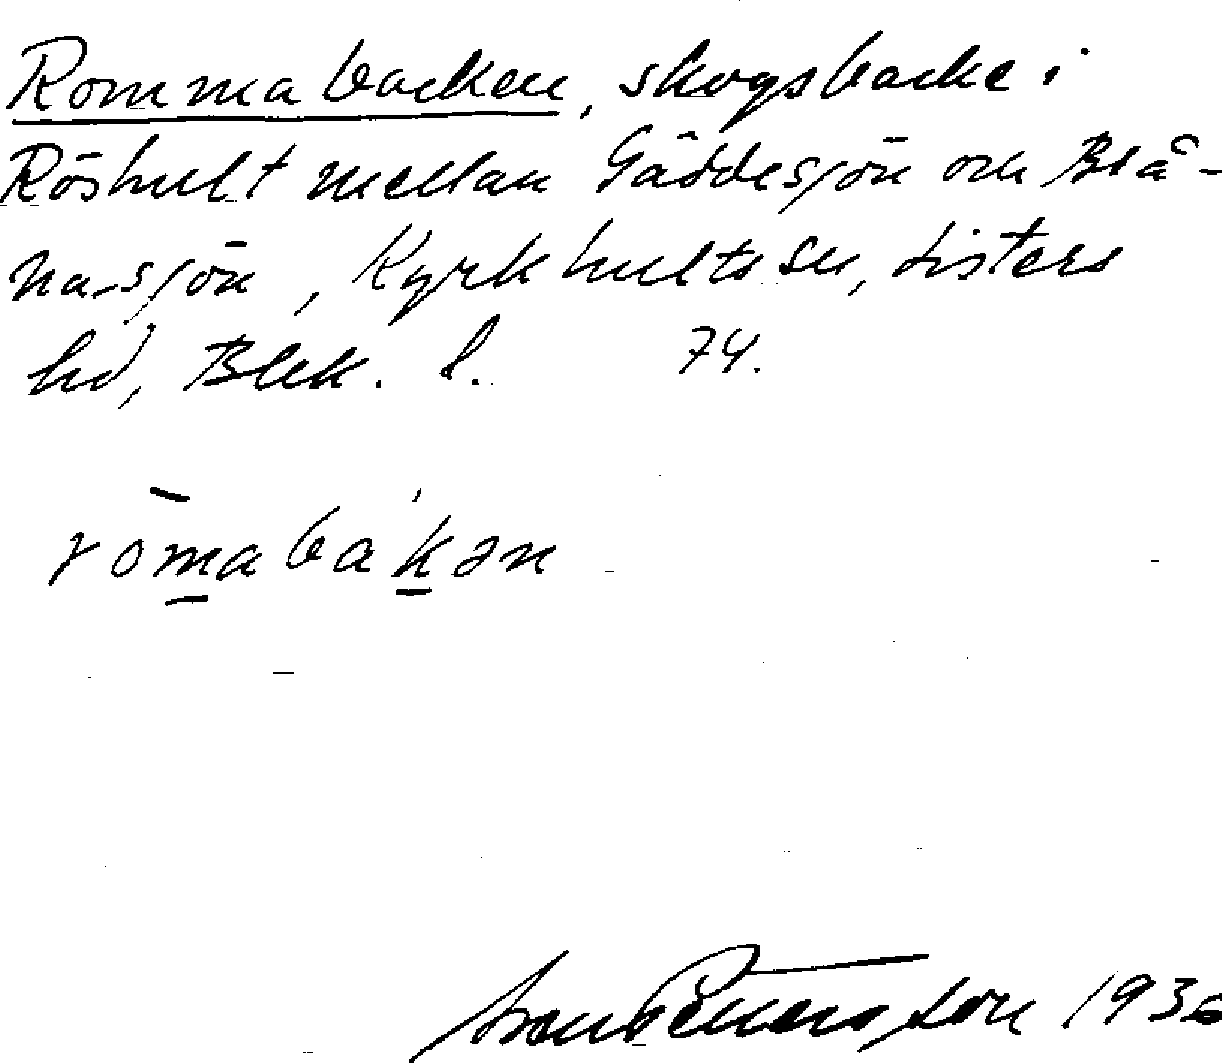 Rommabacken, skogsbacke i
Röshult mellan Gäddesjön och Blå-
nasjön, Kyrkhults sn, Listers
hd, Blek. l. 74.
römabakən
Pettersson 1936